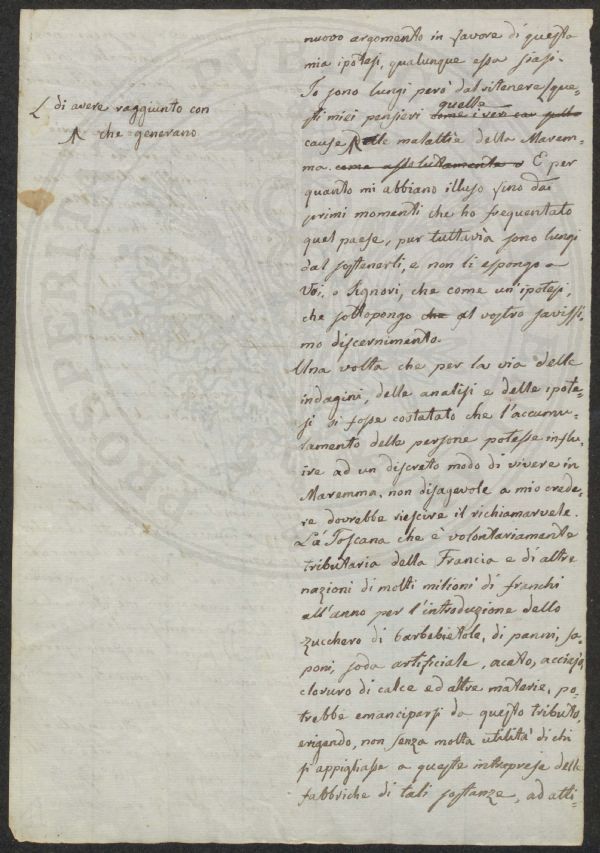 nuovo argomento in favore di questa
mia ipotesi, qualunque essa siasi.
Io sono lungi però dal ritenere [que-
L di avere raggiunto con
sti miei pensieri quelle come i veri
che generano
cause delle malattie della Marem-
ma. come assolutamente E per
quanto mi abbiano illuso sino dai
primi momenti che ho frequentato
quel paese, pur tuttavia sono lungi
dal sostenerli, e non li espongo a
Voi, o Signori, che come un'ipotesi,
che sottopongo che al vostro savissi-
mo discernimento.
Una volta che per la via delle
indagini, delle analisi e delle ipote-
si si fosse costatato che l'accumu-
lamento delle persone potesse influ-
ire ad un discreto modo di vivere in
Maremma, non disagevole a mio crede-
re dovrebbe riescire il richiamarvele.
La Toscana che è volontariamente
tributaria della Francia e di altre
nazioni di molti milioni di franchi
all'anno per l'introduzione dello
zucchero di barbebietole, di panni, sa-
poni, soda artificiale, aceto, acciajo,
cloruro di calce ed altre materie, po-
trebbe emanciparsi da questo tributo,
erigendo, non senza molta utilità di chi
si appigliasse a queste intraprese delle
fabbriche di tali sostanze, ad atti-